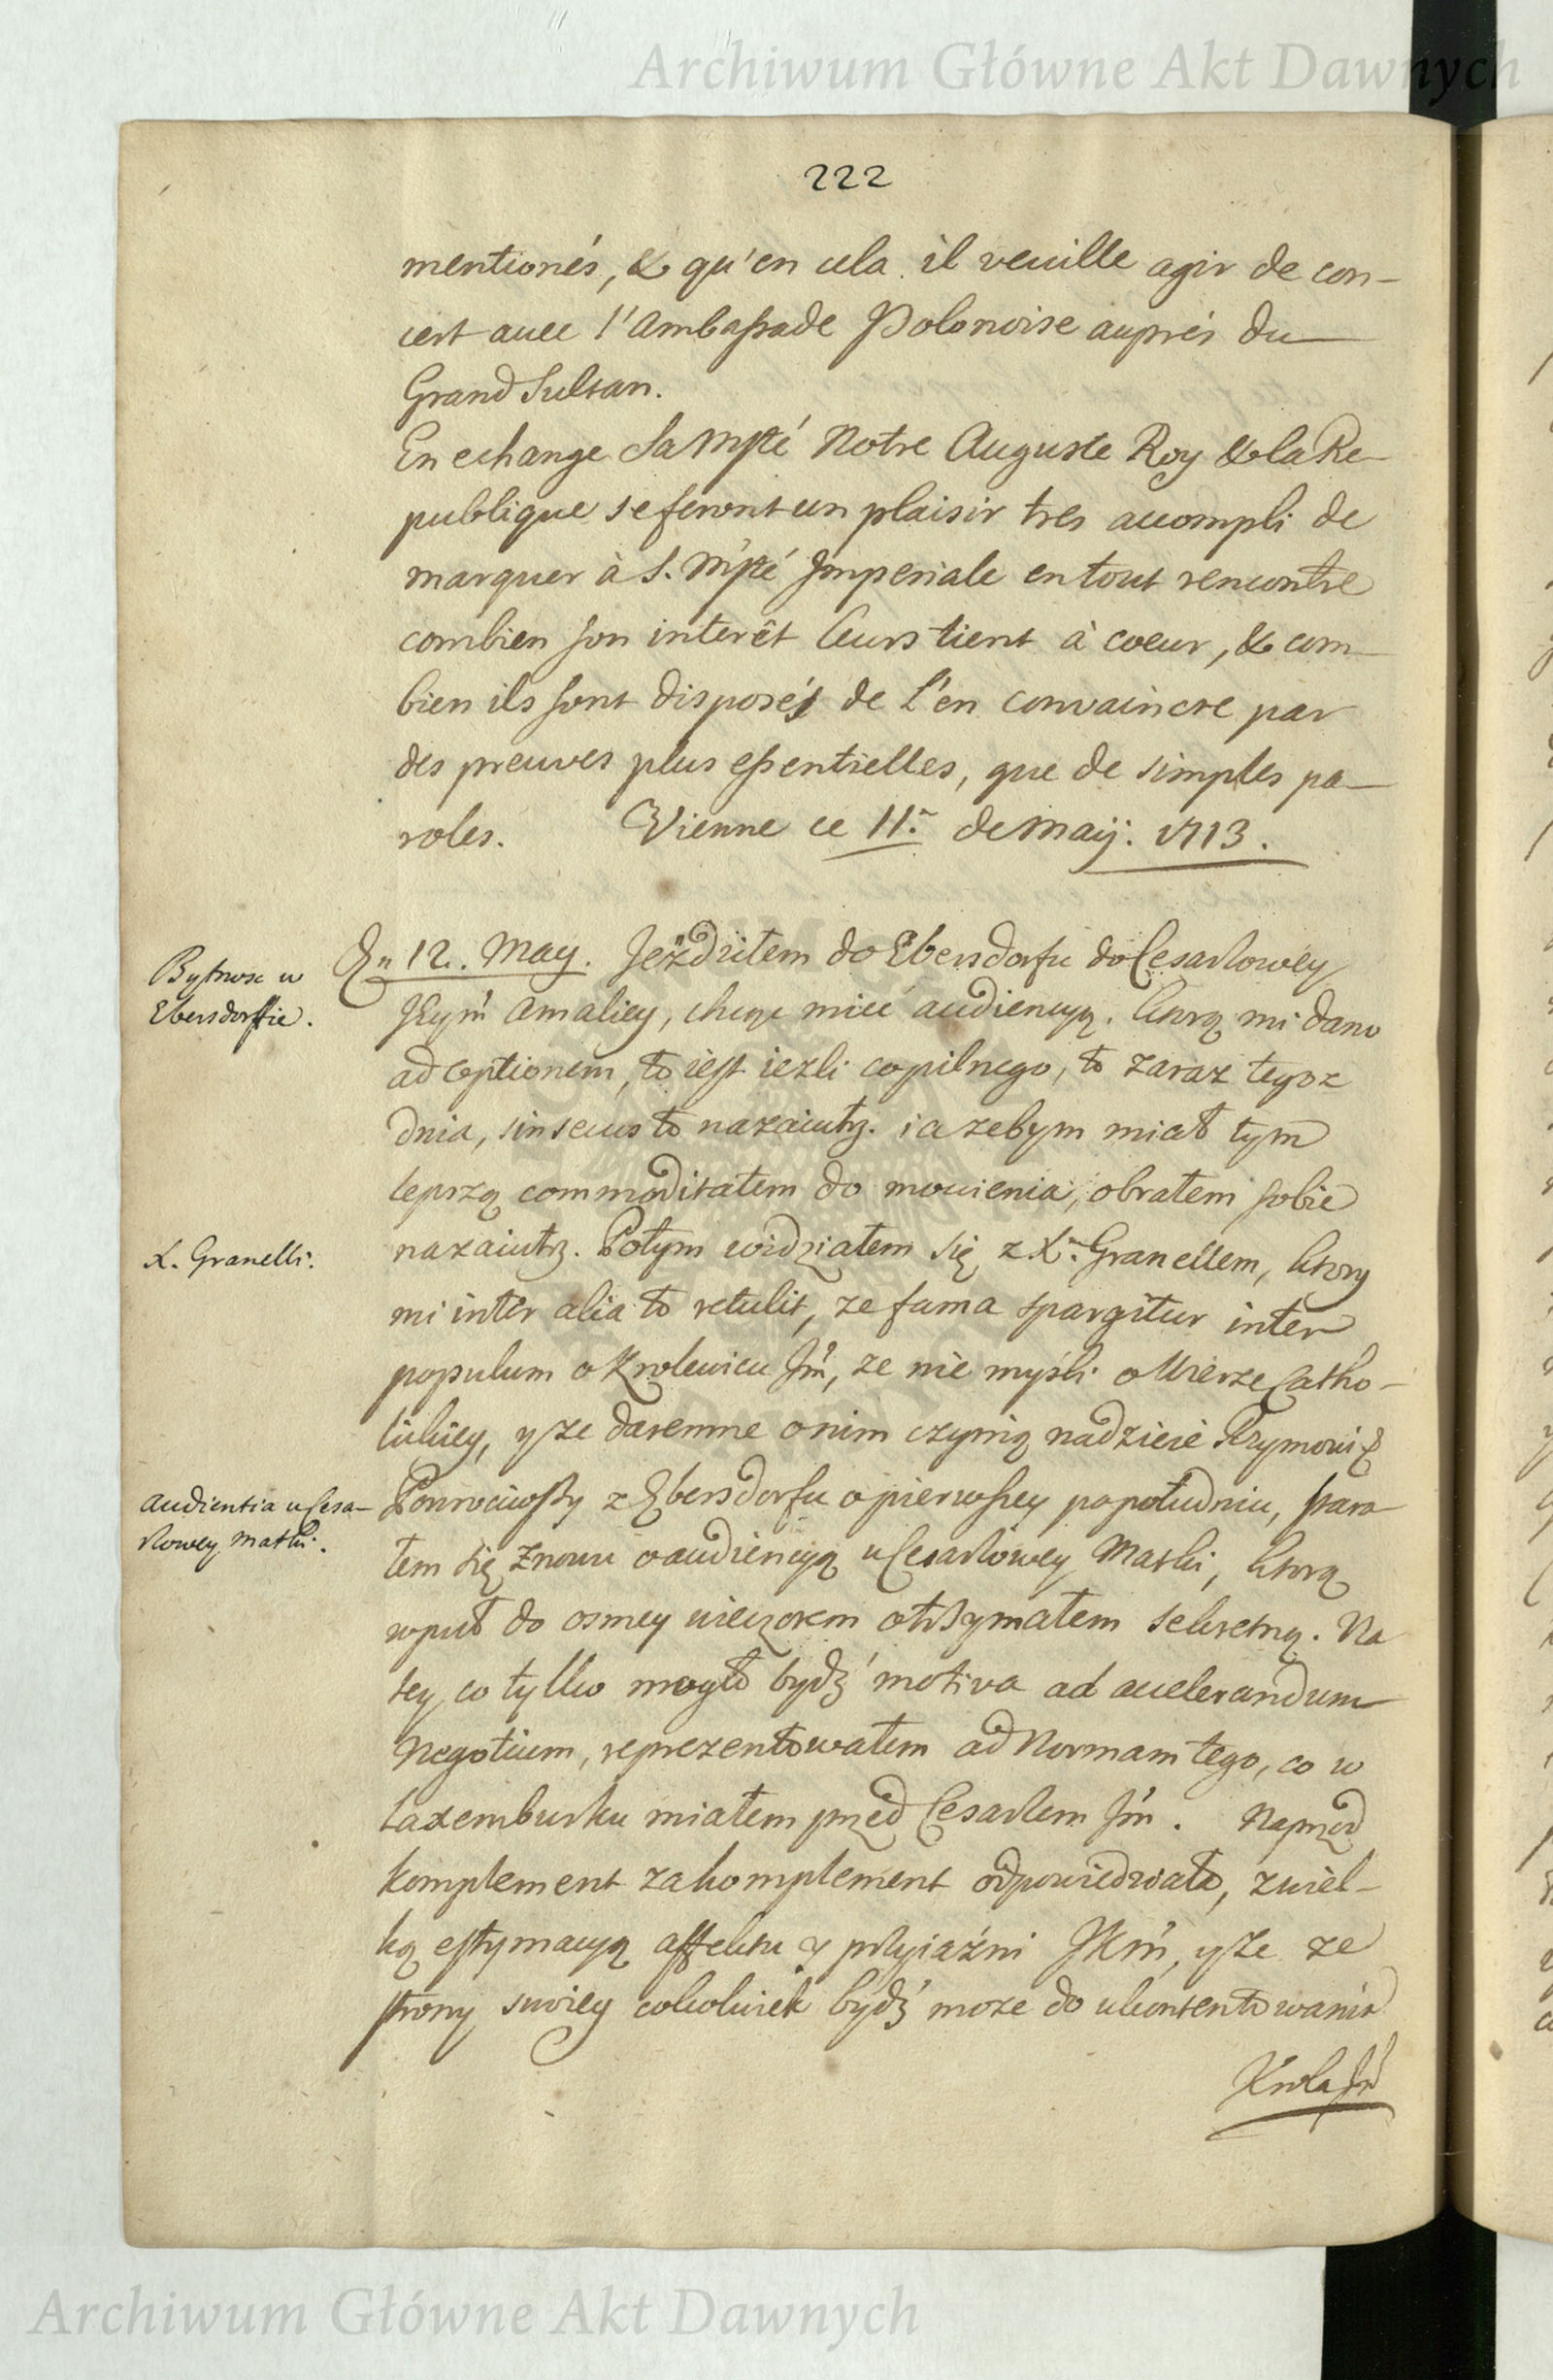 Archiwum Główne Akt Dawnych
222
mentionés, & qu'en cela il veuille agir de con-
cert avec l'Ambassade Polonoise auprés du
Grand Sultan.
En echange Sa Mjté Notre Auguste Roy & la Re-
publique se feront un plaisir tres accompli de
marquer à S. Mjté Imperiale en tout rencontre
combien son interêt leurs tient à coeur, & com-
bien ils sont disposés de L'en convaincre par
des preuves plus essentielles, que de simples pa-
roles. Vienne ce 11. de Maij. 1713.
Bytnosc w
Ebersdorffie.
Dn 12. May. Jezdziłem do Ebersdorfu do Cesarzowey
Jeym Amaliey, chcąc mieć audiencyą. Ktorą mi dano
ad optionem, to iest iezli co pilnego, to zaraz tegoz
dnia, sin secus to nazaiutrz. i a zebym miał tym
lepszą commoditatem do mowienia, obrałem sobie
K. Granelli.
nazaiutrz. Potym widziałem się z X. Granellem, ktory
mi inter alia to retulit, ze fama spargitur inter
populum o Krolewicu Jm, ze nie myśli o Wierze Catho-
lickiey, y ze daremne o nim czynią nadzieie Rzymowi
Audientia u Cesa-
rzowey Matki.
Powrociwszy z Ebersdorfu o pierwszey popołudniu, stara-
łem się znowu o audiencyą u Cesarzowey Matki, ktorą
wpuł do osmey wieczorem otrzymałem sekretną. Na
tey, co tylko mogło bydź motiva ad accelerandum
Negotium, reprezentowałem ad Normam tego, co w
Laxemburku miałem przed Cesarzem Jm. Naprzod
komplement za komplement odpowiedziała, z wiel-
ką estymacyą affektu y przyiaźni JKm, y ze ze
strony swoiey cokolwiek bydź moze do ukontentowania
Krola Jm
Archiwum Główne Akt Dawnych